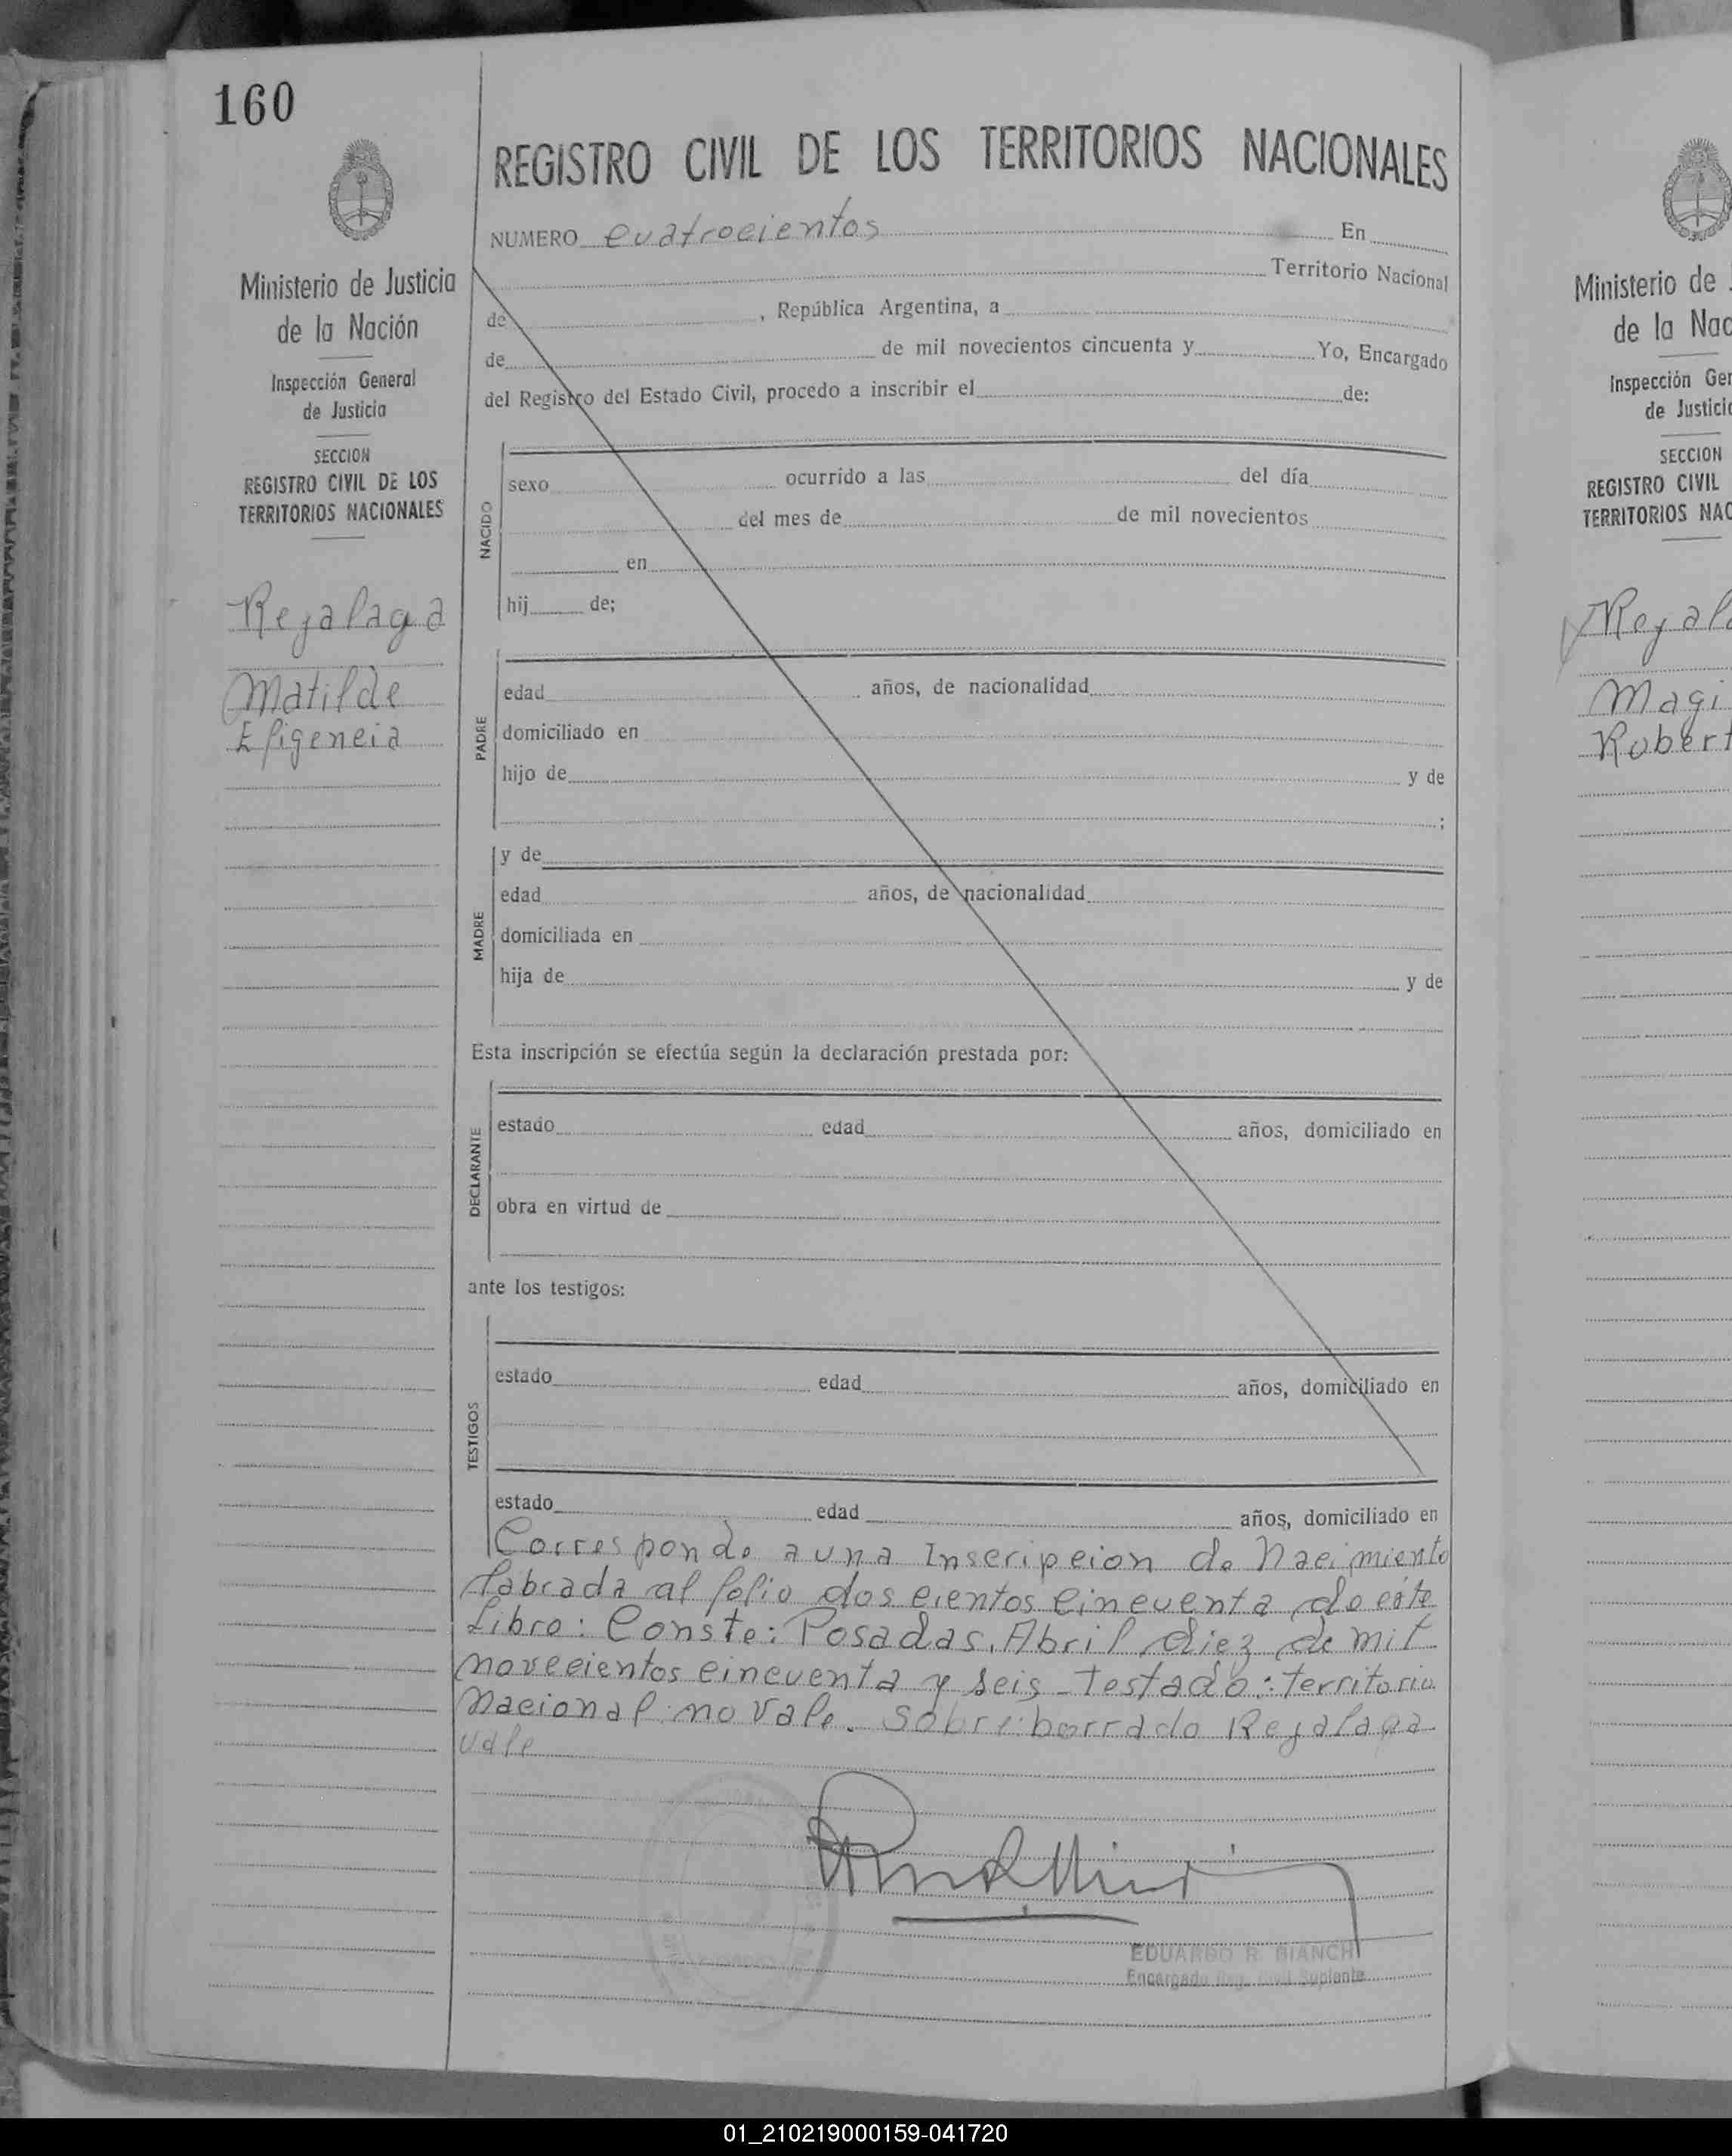 160
REGISTRO CIVIL DE LOS TERRITORIOS NACIONALES
NUMERO cuatrocientos En
Territorio Nacional
de , República Argentina, a
de de mil novecientos cincuenta y Yo, Encargado
del Registro del Estado Civil, procedo a inscribir el de:
Ministerio de Justicia
de la Nación
Inspección General
de Justicia
SECCION
REGISTRO CIVIL DE LOS
TERRITORIOS NACIONALES
Rejalaga
Matilde
Efigeneia
NACIDO
sexo ocurrido a las del día
del mes de de mil novecientos
en
hij de;
PADRE
edad años, de nacionalidad
domiciliado en
hijo de y de
;
MADRE
y de
edad años, de nacionalidad
domiciliada en
hija de y de
Esta inscripción se efectúa según la declaración prestada por:
DECLARANTE
estado edad años, domiciliado en
obra en virtud de
ante los testigos:
TESTIGOS
estado edad años, domiciliado en
estado edad años, domiciliado en
Corresponde a una Inscripcion de Nacimiento
labrada al folio dos cientos cincuenta de éste
Libro: Conste: Posadas, Abril diez de mil
novecientos cincuenta y seis - Testado: territorio
Nacional: no vale. Sobre: borrado Rejalaga
vale
EDUARDO R. BIANCHI
Encargado Reg. Civil Suplente
Ministerio de
de la Nac
Inspección Ger
de Justicia
SECCION
REGISTRO CIVIL
TERRITORIOS NAC
Rejal
Magi
Robert
01_210219000159-041720